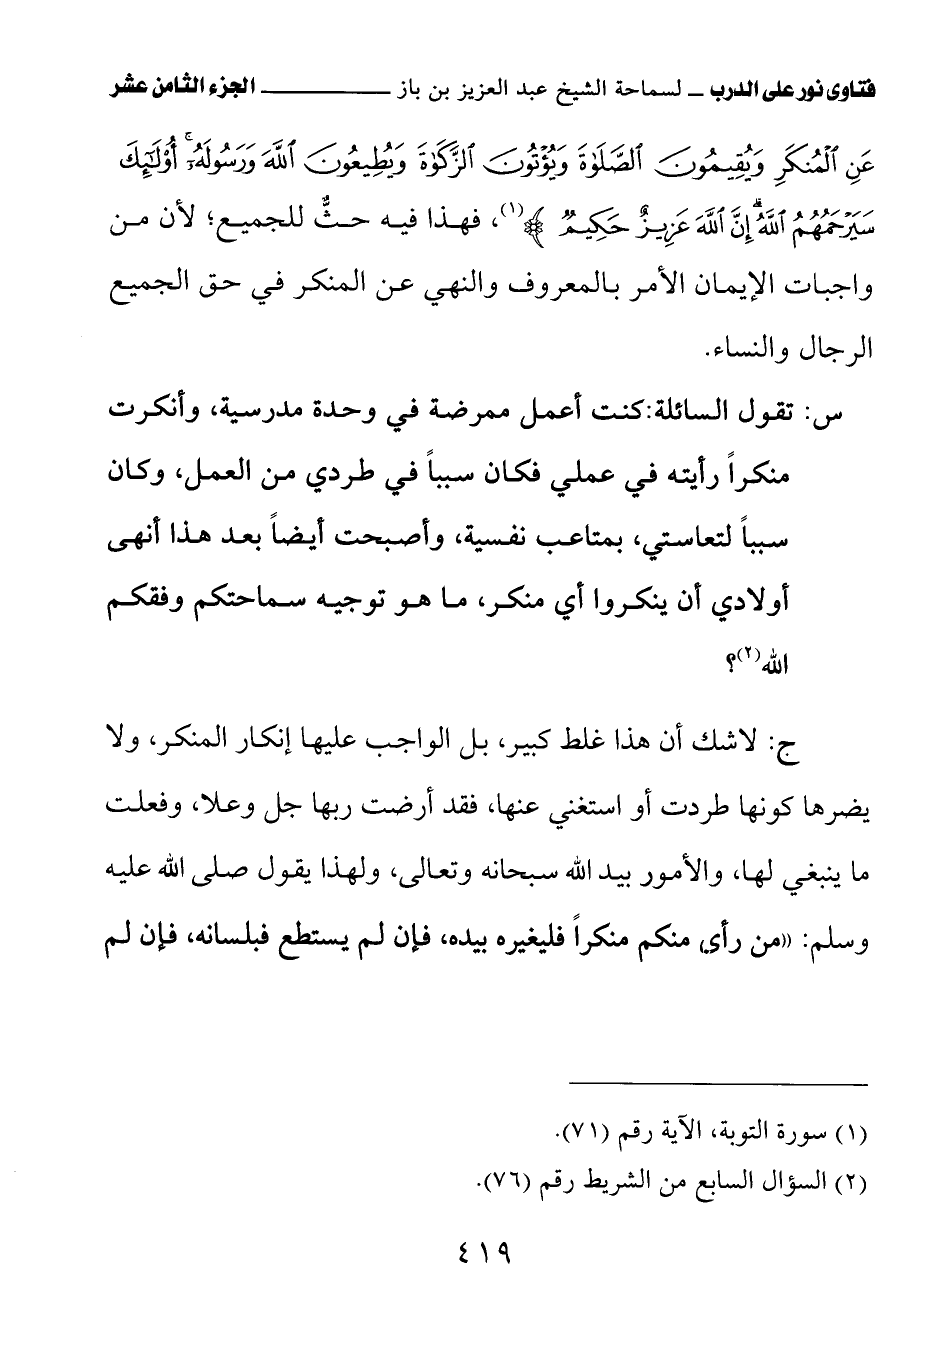 فتاوى نور على الدرب ــ لسماحة الشيخ عبد العزيز بن باز ــــــــــــــ الجزء الثامن عشر
عَنِ ٱلْمُنكَرِ وَيُقِيمُونَ ٱلصَّلَوٰةَ وَيُؤْتُونَ ٱلزَّكَوٰةَ وَيُطِيعُونَ ٱللَّهَ وَرَسُولَهُۥٓ ۚ أُوْلَـٰٓئِكَ
سَيَرْحَمُهُمُ ٱللَّهُ ۗ إِنَّ ٱللَّهَ عَزِيزٌ حَكِيمٌ ﴾(١)، فهذا فيه حثٌّ للجميع؛ لأن من
واجبات الإيمان الأمر بالمعروف والنهي عن المنكر في حق الجميع
الرجال والنساء.
س: تقول السائلة:كنت أعمل ممرضة في وحدة مدرسية، وأنكرت
منكراً رأيته في عملي فكان سبباً في طردي من العمل، وكان
سبباً لتعاستي، بمتاعب نفسية، وأصبحت أيضاً بعد هذا أنهى
أولادي أن ينكروا أي منكر، ما هو توجيه سماحتكم وفقكم
الله(٢)؟
ج: لاشك أن هذا غلط كبير، بل الواجب عليها إنكار المنكر، ولا
يضرها كونها طردت أو استغني عنها، فقد أرضت ربها جل وعلا، وفعلت
ما ينبغي لها، والأمور بيد الله سبحانه وتعالى، ولهذا يقول صلى الله عليه
وسلم: «من رأى منكم منكراً فليغيره بيده، فإن لم يستطع فبلسانه، فإن لم
(١) سورة التوبة، الآية رقم (٧١).
(٢) السؤال السابع من الشريط رقم (٧٦).
٤١٩